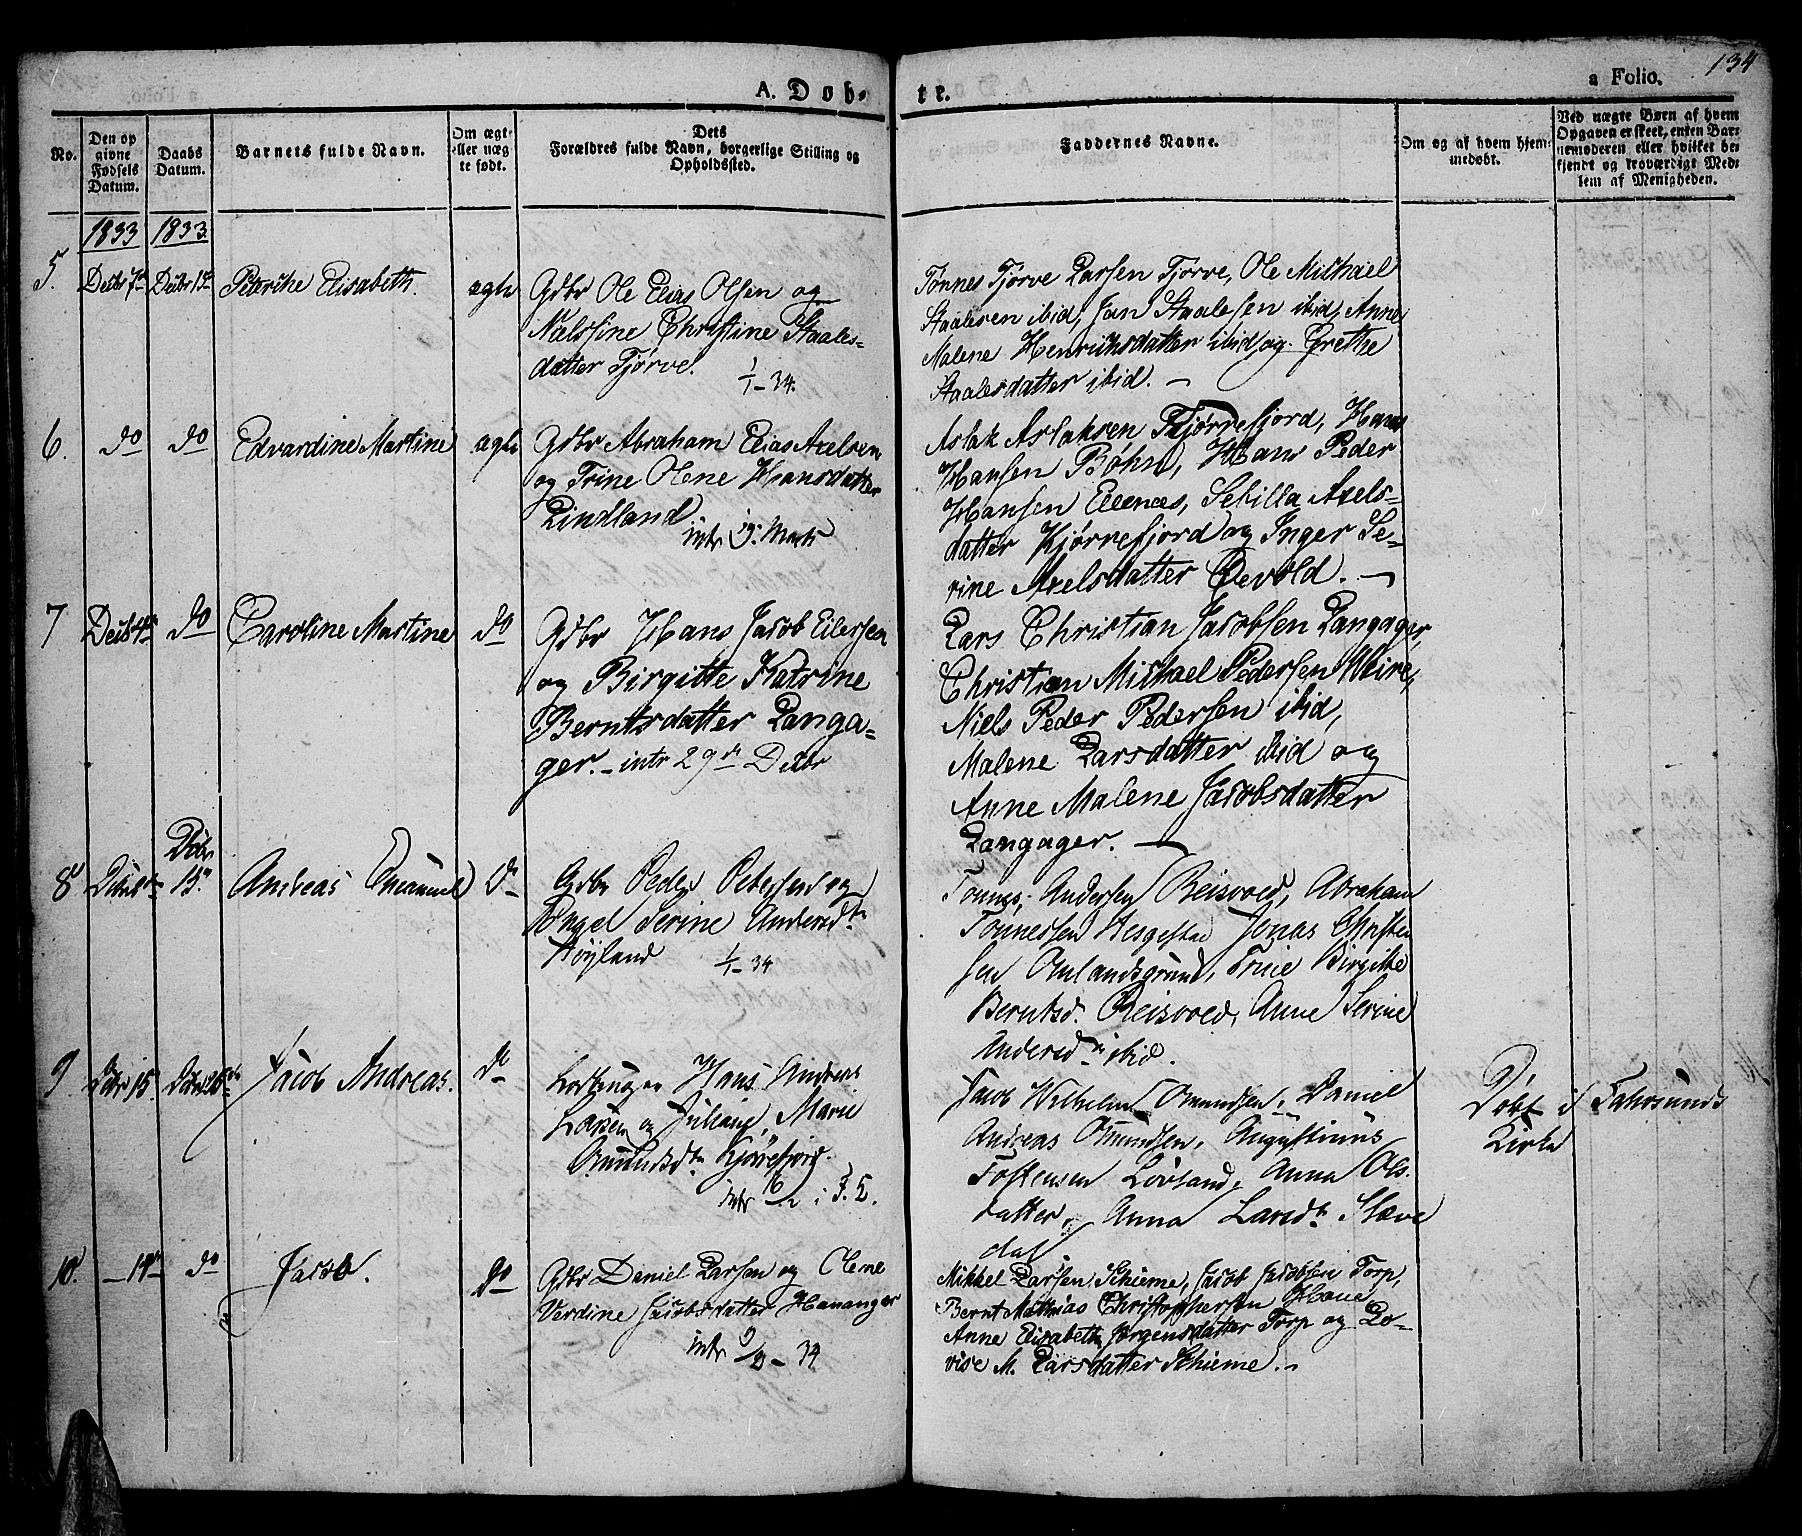 134
A. Døb-
te.
a Folio.
No.
Den op
givne
Fødsels
Datum.
Daabs
Datum.
Barnets fulde Navn.
Om ægt-
eller uæg
te født.
Dets
Forældres fulde Navn, borgerlige Stilling og
Opholdssted.
Faddernes Navne.
Om og af hvem hjem-
medøbt.
Ved uægte Børn af hvem
Opgaven er skeet, enten Bar-
nemoderen eller hvilket be-
kjendt og troværdigt Med-
lem af Menigheden.
1833 1833
5. Decbr 7de Decbr 15de Elisabeth. ægte
Gdbr Ole Elias Olsen og
Christine Staales-
datter Tjørve. 1/1-34.
Tønnes Tjørve Larsen Tjørve, Ole Michael
Staalesen ibid, Jan Staalesen ibid, Anne
Malene Henrichsdatter ibid og Grethe
Staalesdatter ibid. —
6. do do Edvardine Martine ægte
Gdbr Abraham Elias Axelsen
og Trine Olene Hansdatter
Lindland
intr 9. Marts
Aslak Aslaksen Kjørrefjord, Hans
Hansen Bøhn, Hans Peder
Hansen Ellenæs, Sebilla Axels-
datter Kjørrefjord og Inger Se-
rine Axelsdatter Qvevold. —
7 do Caroline Martine do
Gdbr Hans Jacob Eilersen
og Birgitte Katrine
Berntsdatter Langa-
ger. - intr 29de Decbr
Lars Christian Jacobsen Langager,
Christian Michael Pedersen Meire,
Niels Peder Pedersen ibid,
Malene Larsdatter ibid og
Anne Malene Jacobsdatter
Langager. —
8 Decbr
15de Andreas Emanuel do
Gdbr Peder Petersen og
Engel Serine Andersdtr
Høyland 1/1-34
Tønnes Andersen Reisvold, Abraham
Tønnessen Hesgestad Jonas Christen
sen Omlandsgrund, Trine Birgitte
Berntsd. Reisvold, Anne Serine
Andersdtr ibid.
9 Dcbr 15 Dcbr 26de Jacob Andreas. do
Hans Andreas
Larsen og Juliane Marie
Omundsdtr Kjørrefjord.
intr 16/2 i F. K.
Jacob Wilhelm Omundsen, Daniel
Andreas Omundsen, Augustinus
Tostensen Løvland, Anna Ols-
datter, Anna Larsdtr Stave
dal
Døbt i Fahrsunds
Kirke
10. — 14de do Jacob. do
Gdbr Daniel Larsen og Olene
Verdine Jacobsdatter Hananger
intr 9/2 - 34
Mikkel Larsen Skieme, Jacob Jacobsen Torp,
Bernt Mathias Christophersen Hane,
Anne Elisabeth Jørgensdatter Torp og Lo-
vise M. Larsdatter Skieme. -